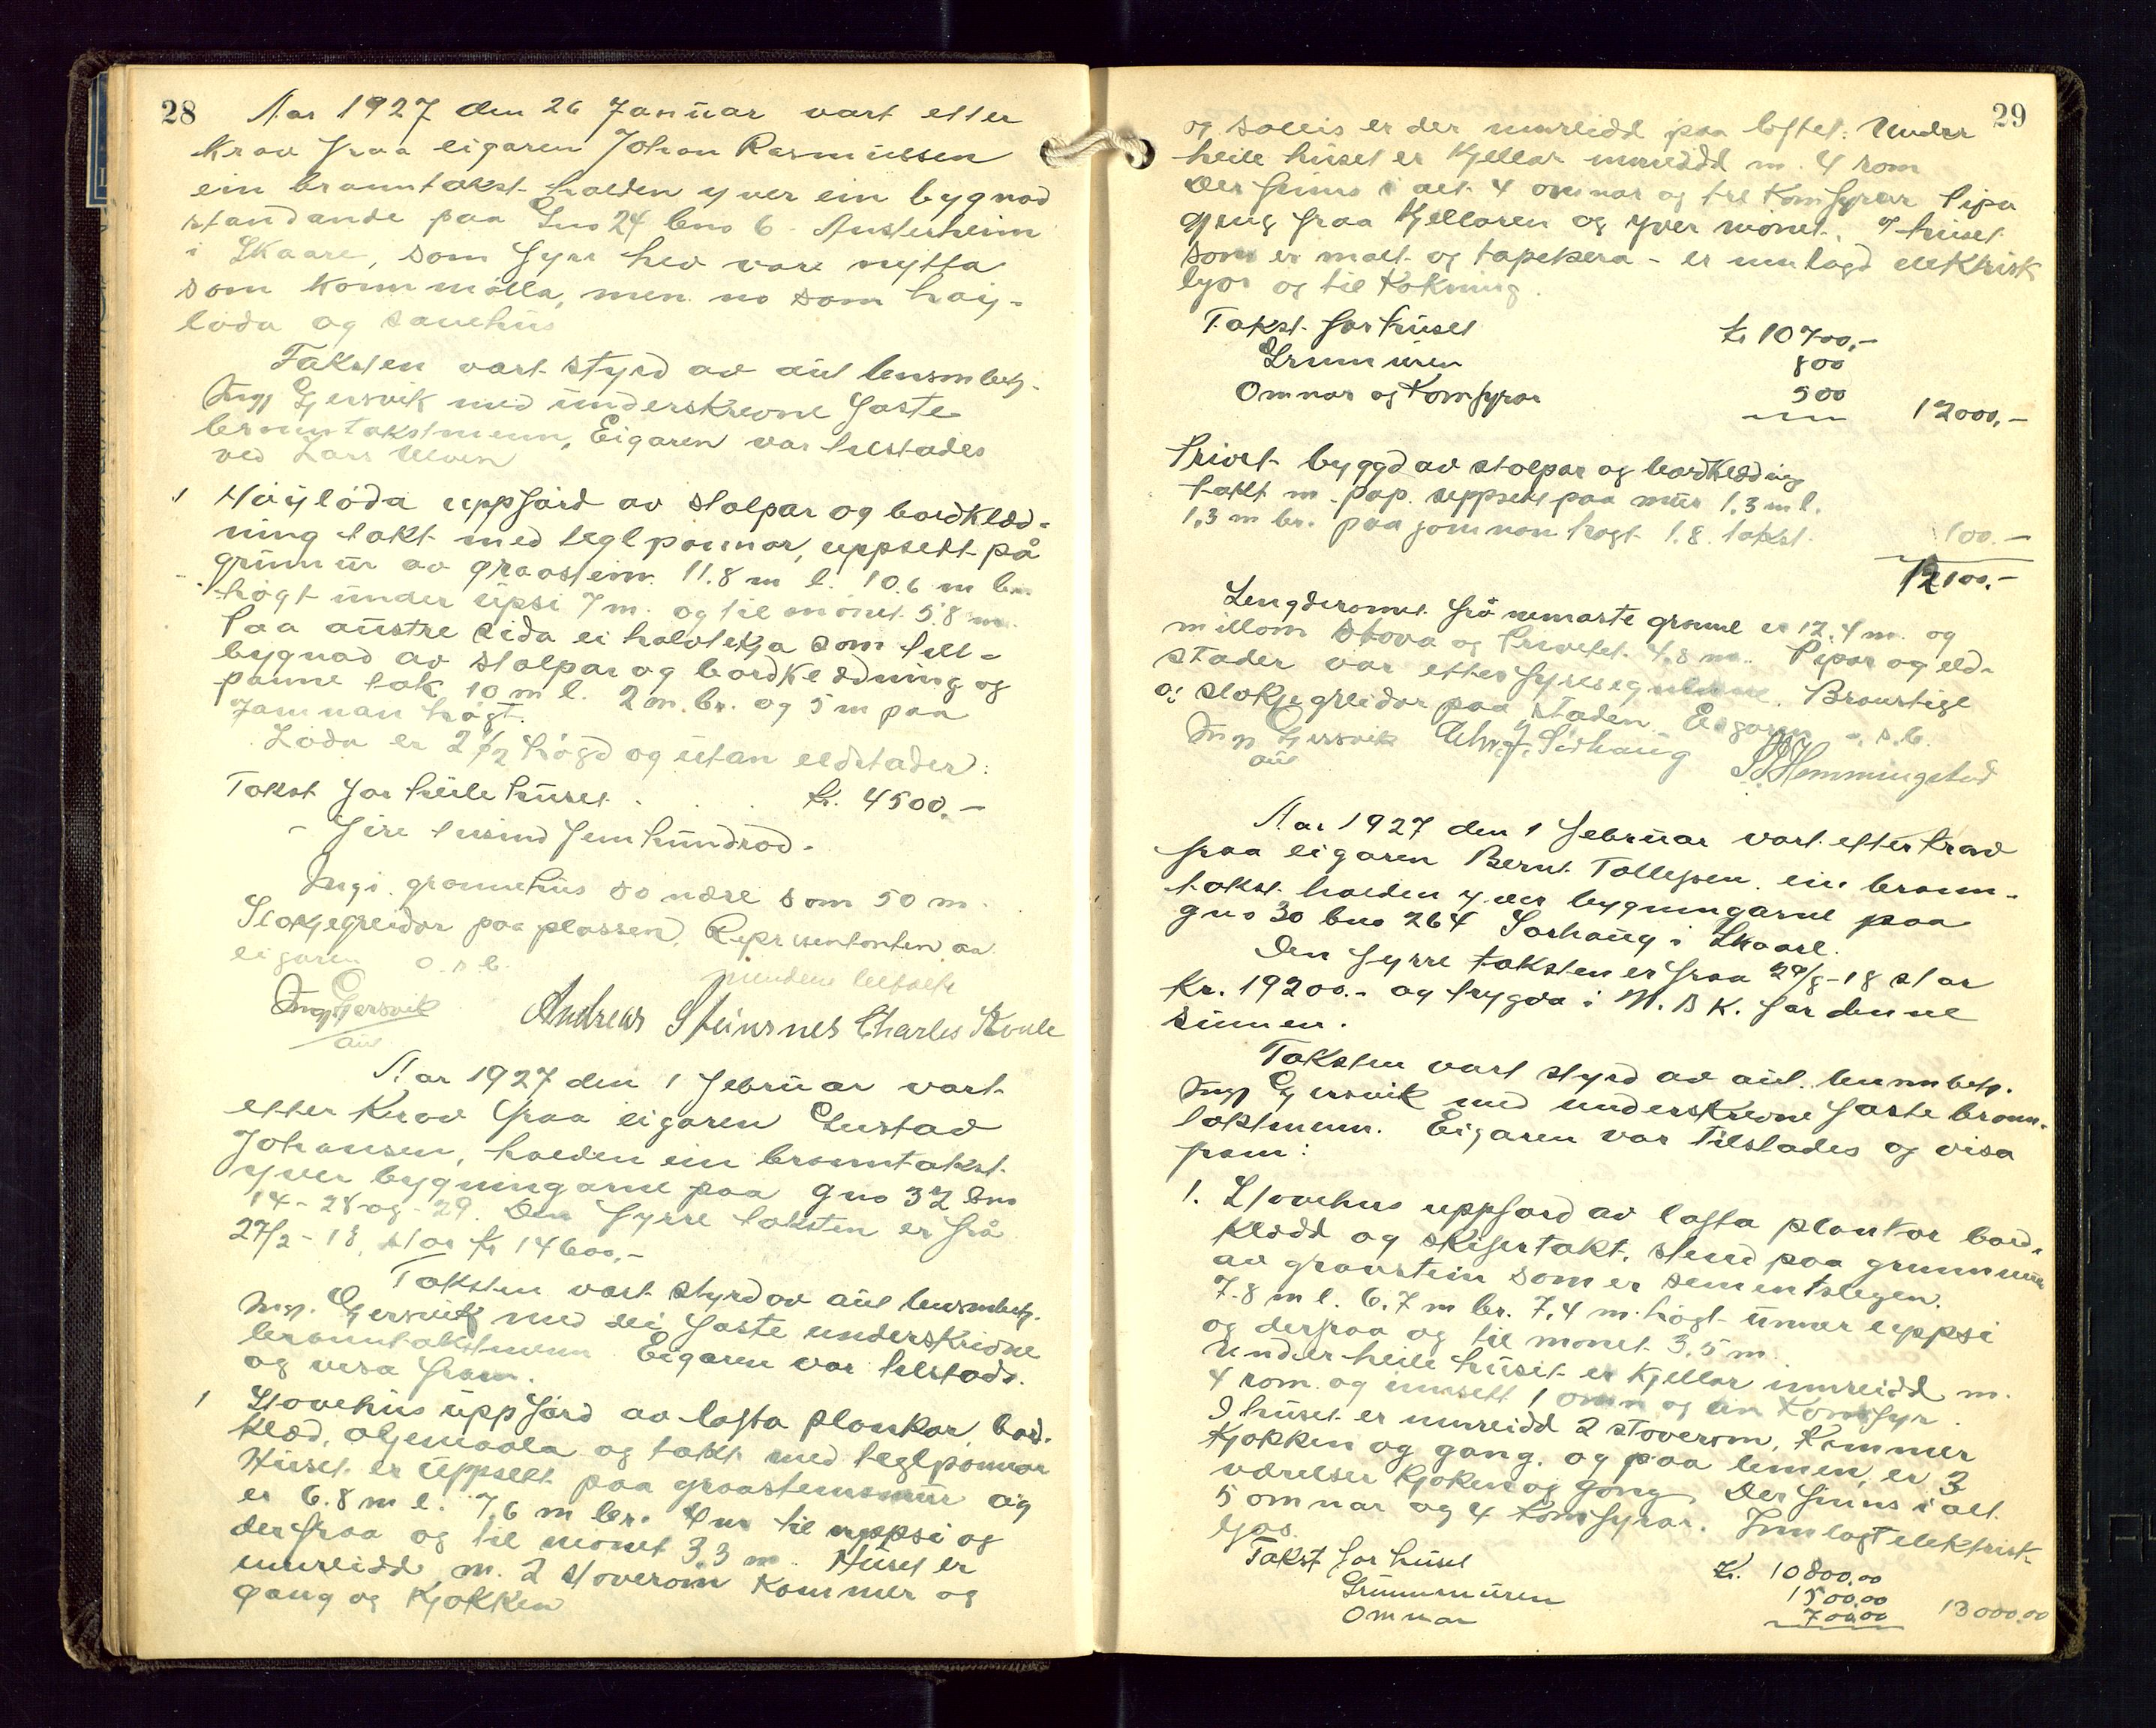 28
Aar 1927 den 26 Januar vart etter
krav fraa eigaren Johan Rasmussen
ein branntakst halden yver ein bygnad
standande paa Gno 24 bno 6 Austerheim
i Skaare, som fyrr hev vore nytta
som kornmölla, men no som höy-
löda og sauehus
Taksten vart styrd av aut lensmbetj.
Ingv Gjersvik med underskrevne faste
branntakstmenn, Eigaren var tilstades
ved Lars
1 Höylöda uppförd av stolpar og bordklæd-
ning takt med teglpannor, uppsett på
grunnur av graastein. 11.8 m l. 10.6 m br.
högt under upsi 7 m. og til mönet 5.8 m
Paa austre sida ei halvtekja som till-
bygnad av stolpar og bordklædning og
panne tak 10 m l. 2 m. br. og 5 m paa
jamnan högt.
Löda er 2 1/2 högd og utan eldstader:
Takst for heile huset . . . kr. 4500.-
- fire tusind fem hundrad -
Ingi grannehus so nære som 50 m.
Slökjegreidor paa plassen. Representanten av
eigaren o.s.b.
Ingv Gjersvik
aut
Andreas Steinsnes Charles
Aar 1927 den 1 Februar vart
etter krav fraa eigaren Gustav
Johansen, halden ein branntakst
yver bygningarne paa gno 32 bno
14 - 28 og - 29. Den fyrre taksten er frå
27/2 - 18, stor kr 14600,-
Taksten vart styrd av aut lensmbetj.
Ingv. Gjersvik med dei faste underskrivne
branntakstmenn Eigaren var tilstads.
og visa fram.
1 Stovehus uppförd av lafta plankar, bord-
klæd, oljemaala og takt med teglpannor
Huset er uppsett paa graasteinsmur og
er 6.8 m l. 7.6 m br. 4 m til uppsi og
derfraa og til mönet 3.3 m. Huset er
innreidd m. 2 stoverom kammer og
gang og kjökken
29
og soleis er der innreidd paa loftet. Under
heile huset er kjellar innreidd m. 4 rom
Der finns i alt 4 omnar og tre komfyrar Pipa
gjeng fraa kjellaren og yver mönet. I huset
som er malt og tapetsera - er innlagd elektrisk
ljos og til kokning.
Takst for huset kr 10700,-
Grunnuren 800
Omnar og komfyrar 500 12000,-
Privet byggd av stolpar og bordklædning
takt m. pap. uppsett paa mur 1.3 m l.
1.3 m br. paa jamnan högt 1.8. takst. 100.-
12100.-
Lengderomet frå nemaste granne er 12.4 m. og
millom stova og Privetet 4.8 m. Pipor og eld-
stader var etter fyresegnerne. Brannstige
og slökjegreidor paa staden. Eigaren o.s.b.
Ingv Gjersvik Chr. J. Sörhaug
aut
Hemmingstad
Aar 1927 den 1 Februar vart etter krav
fraa eigaren Bernt Tollefsen ein brann-
takst halden yver bygningarne paa
gno 30 bno 264 Sörhaug i Skaare.
Den fyrre taksten er fraa 29/8 - 18 stor
kr. 19200.- og trygda i N.B.K. for denne
summen.
Taksten vart styrd av aut. lensmbetj.
Ingv Gjersvik med underskrevne faste brann-
takstmenn. Eigaren var tilstades og visa
fram:
1. Stovehus uppförd av lafta plankor bord-
klædd og skifertakt. stend paa grunnmur
av graastein som er sementslegen.
7.8 m l. 6.7 m br. 7,4 m. högt under uppsi
og derfraa og til mönet 3.5 m.
Under heile huset er kjellar innreidd m.
4 rom. og innsett 1 omn og ein komfyr.
I huset er innreidd 2 stoverom, kammer
kjökken og gang. og paa lemen er 3
værelser kjöken og gang. Der finns i alt
5 omnar og 4 komfyrar. Innlagt elektrisk
ljos.
Takst for huset kr. 10800,00
Grunnmuren 1500,00
Omnar 700,00 13000.00